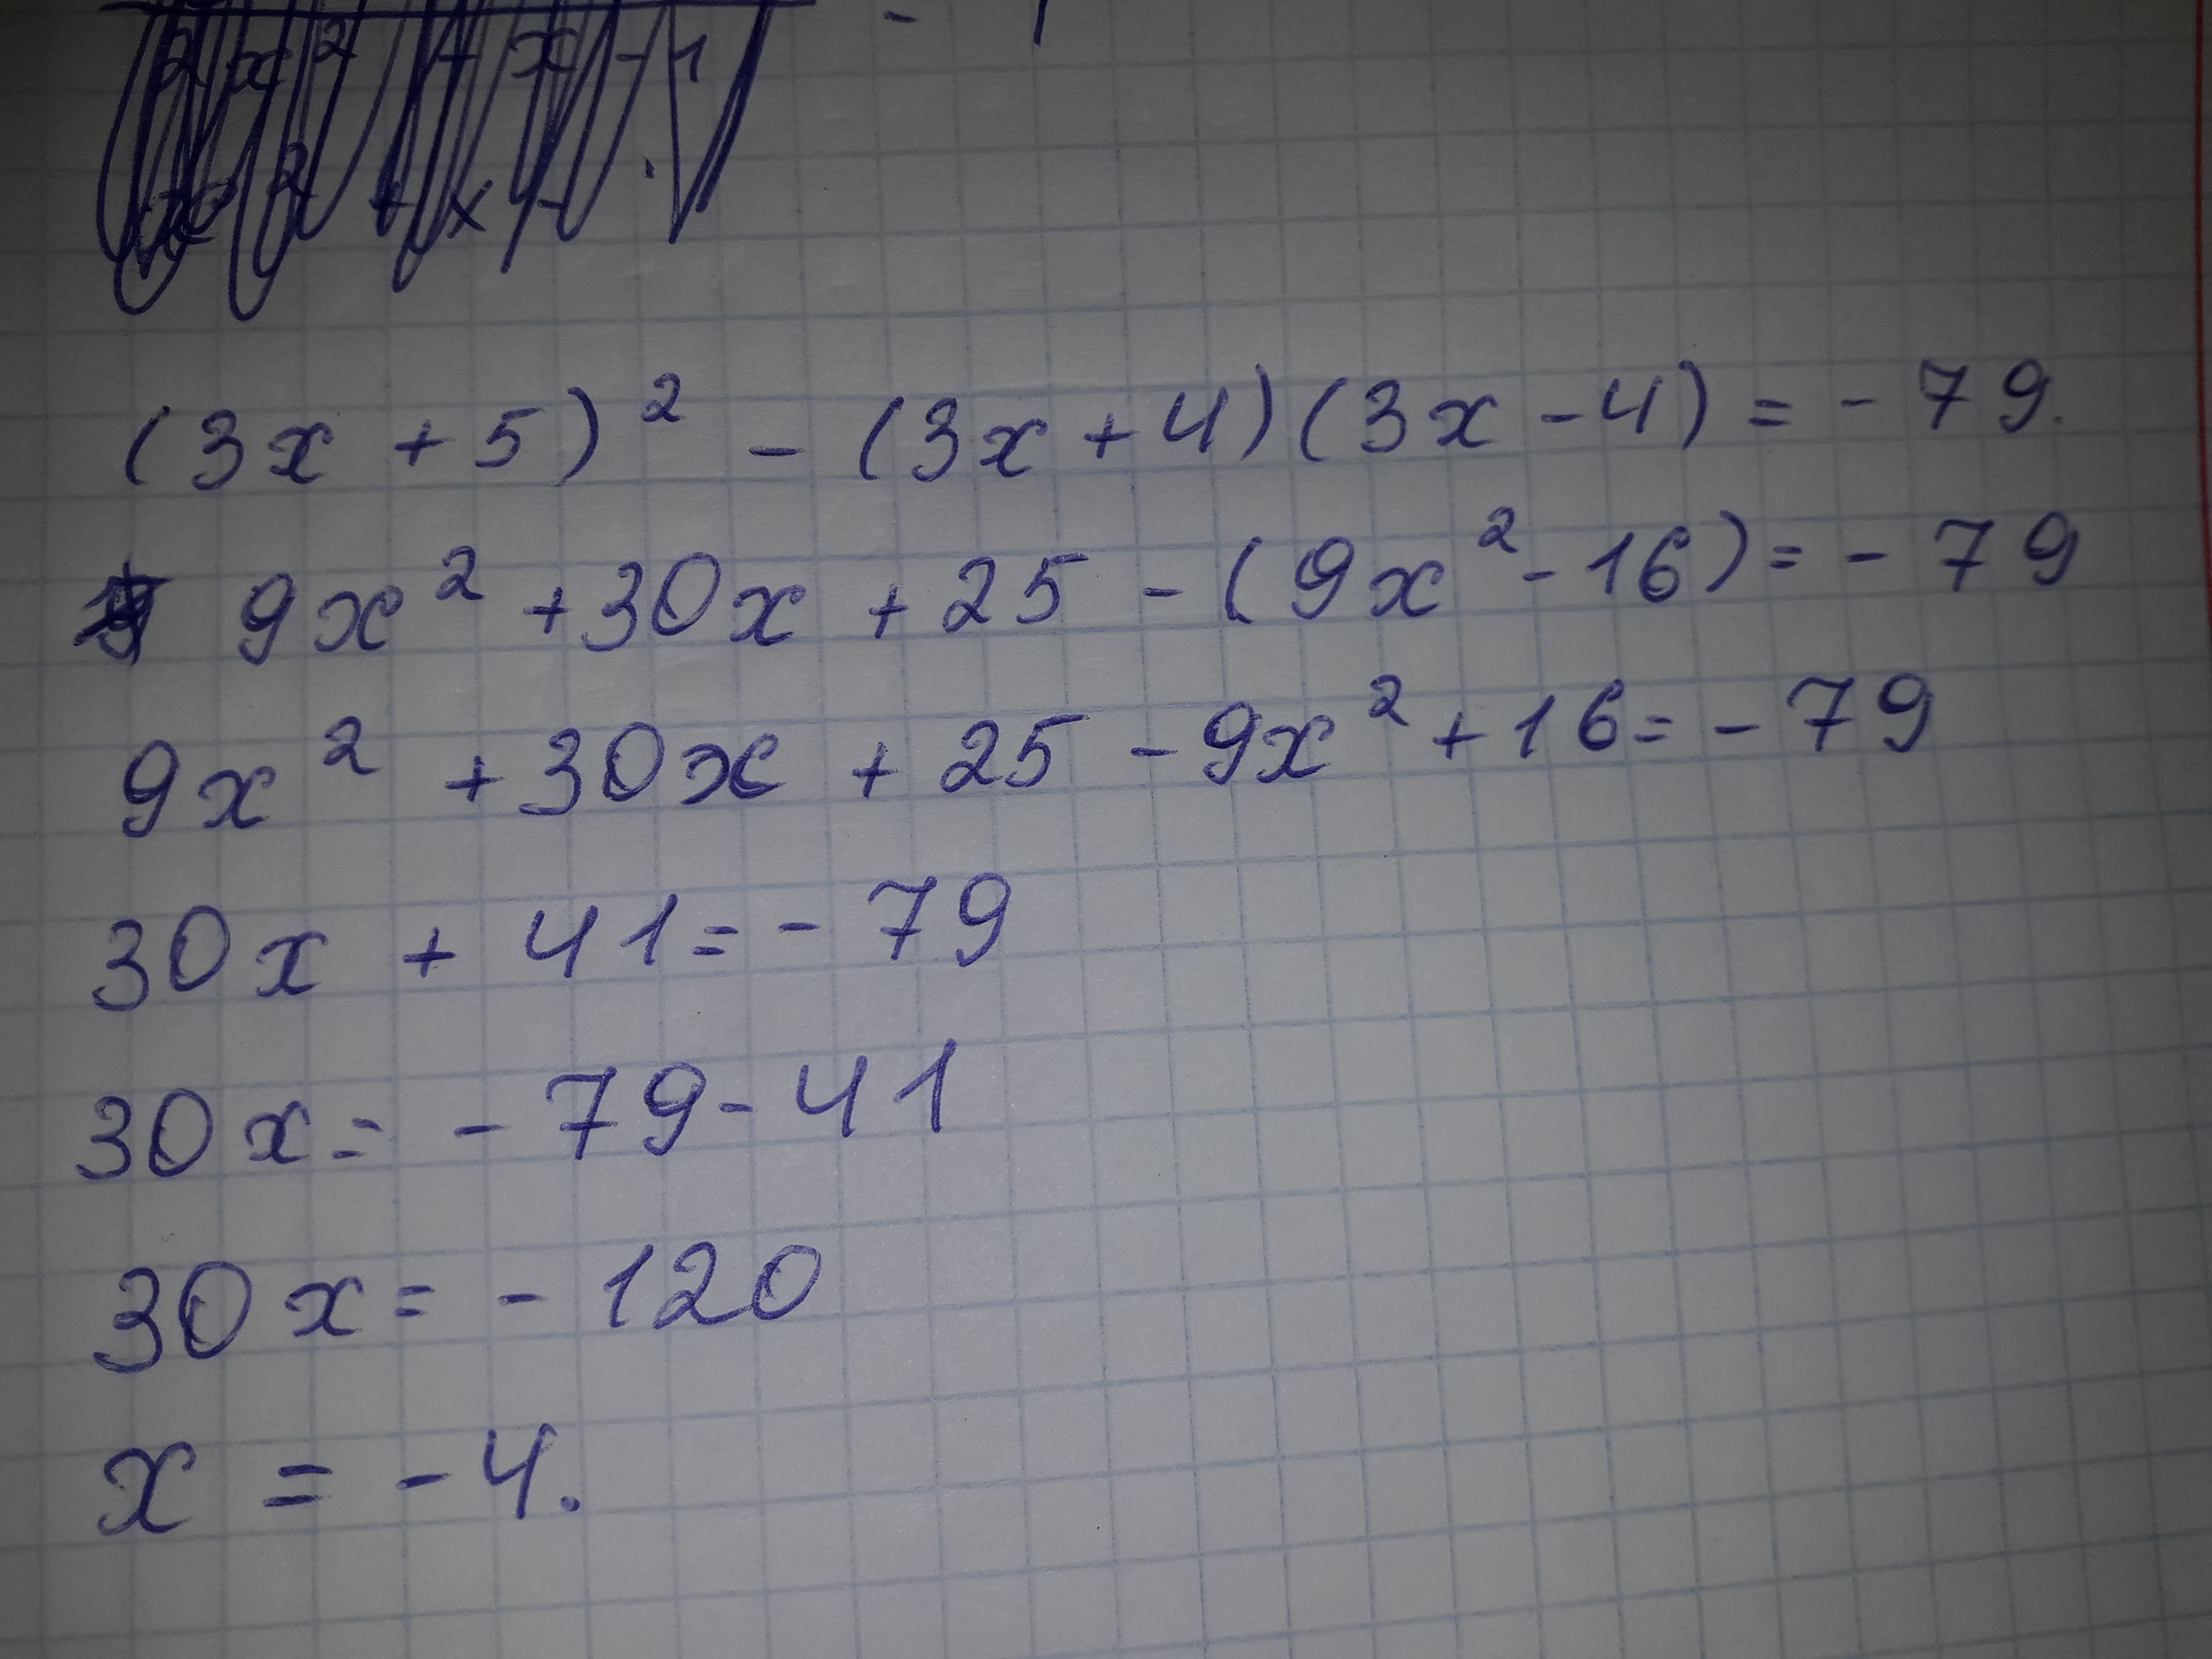 (3x + 5)² - (3x + 4)(3x - 4) = - 79.
9x² + 30x + 25 - (9x² - 16) = - 79
9x² + 30x + 25 - 9x² + 16 = - 79
30x + 41 = - 79
30x = - 79 - 41
30x = - 120
x = - 4.